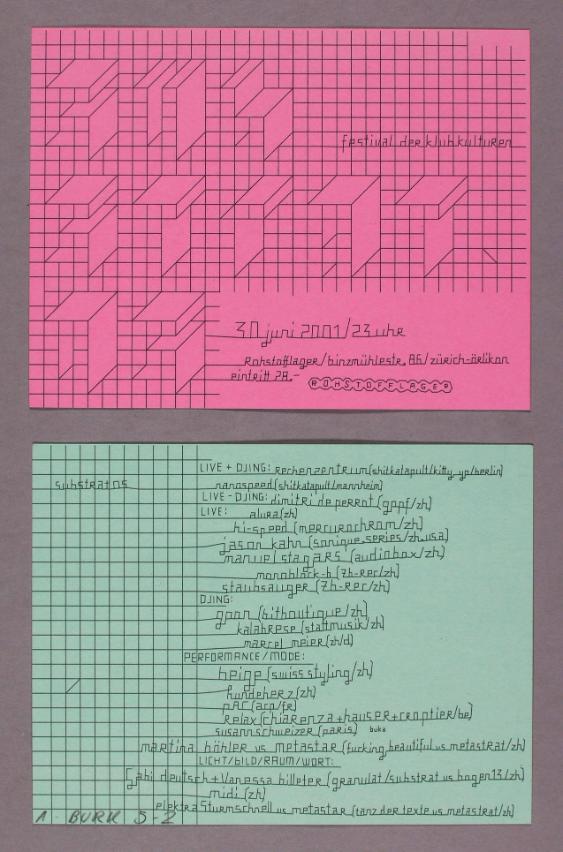 festival der klubkulturen
30 juni 2001/23 uhr
Rohstofflager/binzmühlestr. 86/zürich-örlikon
eintritt 28.-
ROHSTOFFLAGER
substrat 05
LIVE + DJING: Rechenzentrum (shitkatapult/kitty yo/berlin)
nanospeed (shitkatapult/mannheim)
LIVE-DJING: dimitri de perrot (gopf/zh)
LIVE: alura (zh)
hi-speed (mercurochrom/zh)
jason kahn (sonique.series/zh,usa)
manuel stagars (audiobox/zh)
monoblock-b (7b-Rec/zh)
staubsauger (7b-Rec/zh)
DJING:
gpan (bitboutique/zh)
kalabrese (stattmusik/zh)
marcel meier (zh/d)
PERFORMANCE/MODE:
beige (swiss styling/zh)
hundeherz (zh)
pAC (fr)
Relax (chiarenza+hauser+croptier/be)
susann schweizer (paris) buks
martina böhler vs metastar (fucking beautiful vs metastrat/zh)
LICHT/bILD/RAUM/WORT:
Gabi deutsch+Vanessa billeter (granulat/substrat vs bogen13/zh)
midi (zh)
elektra Sturmschnell vs metastar (tanz der texte vs metastrat/zh)
1 · BURK 5-2